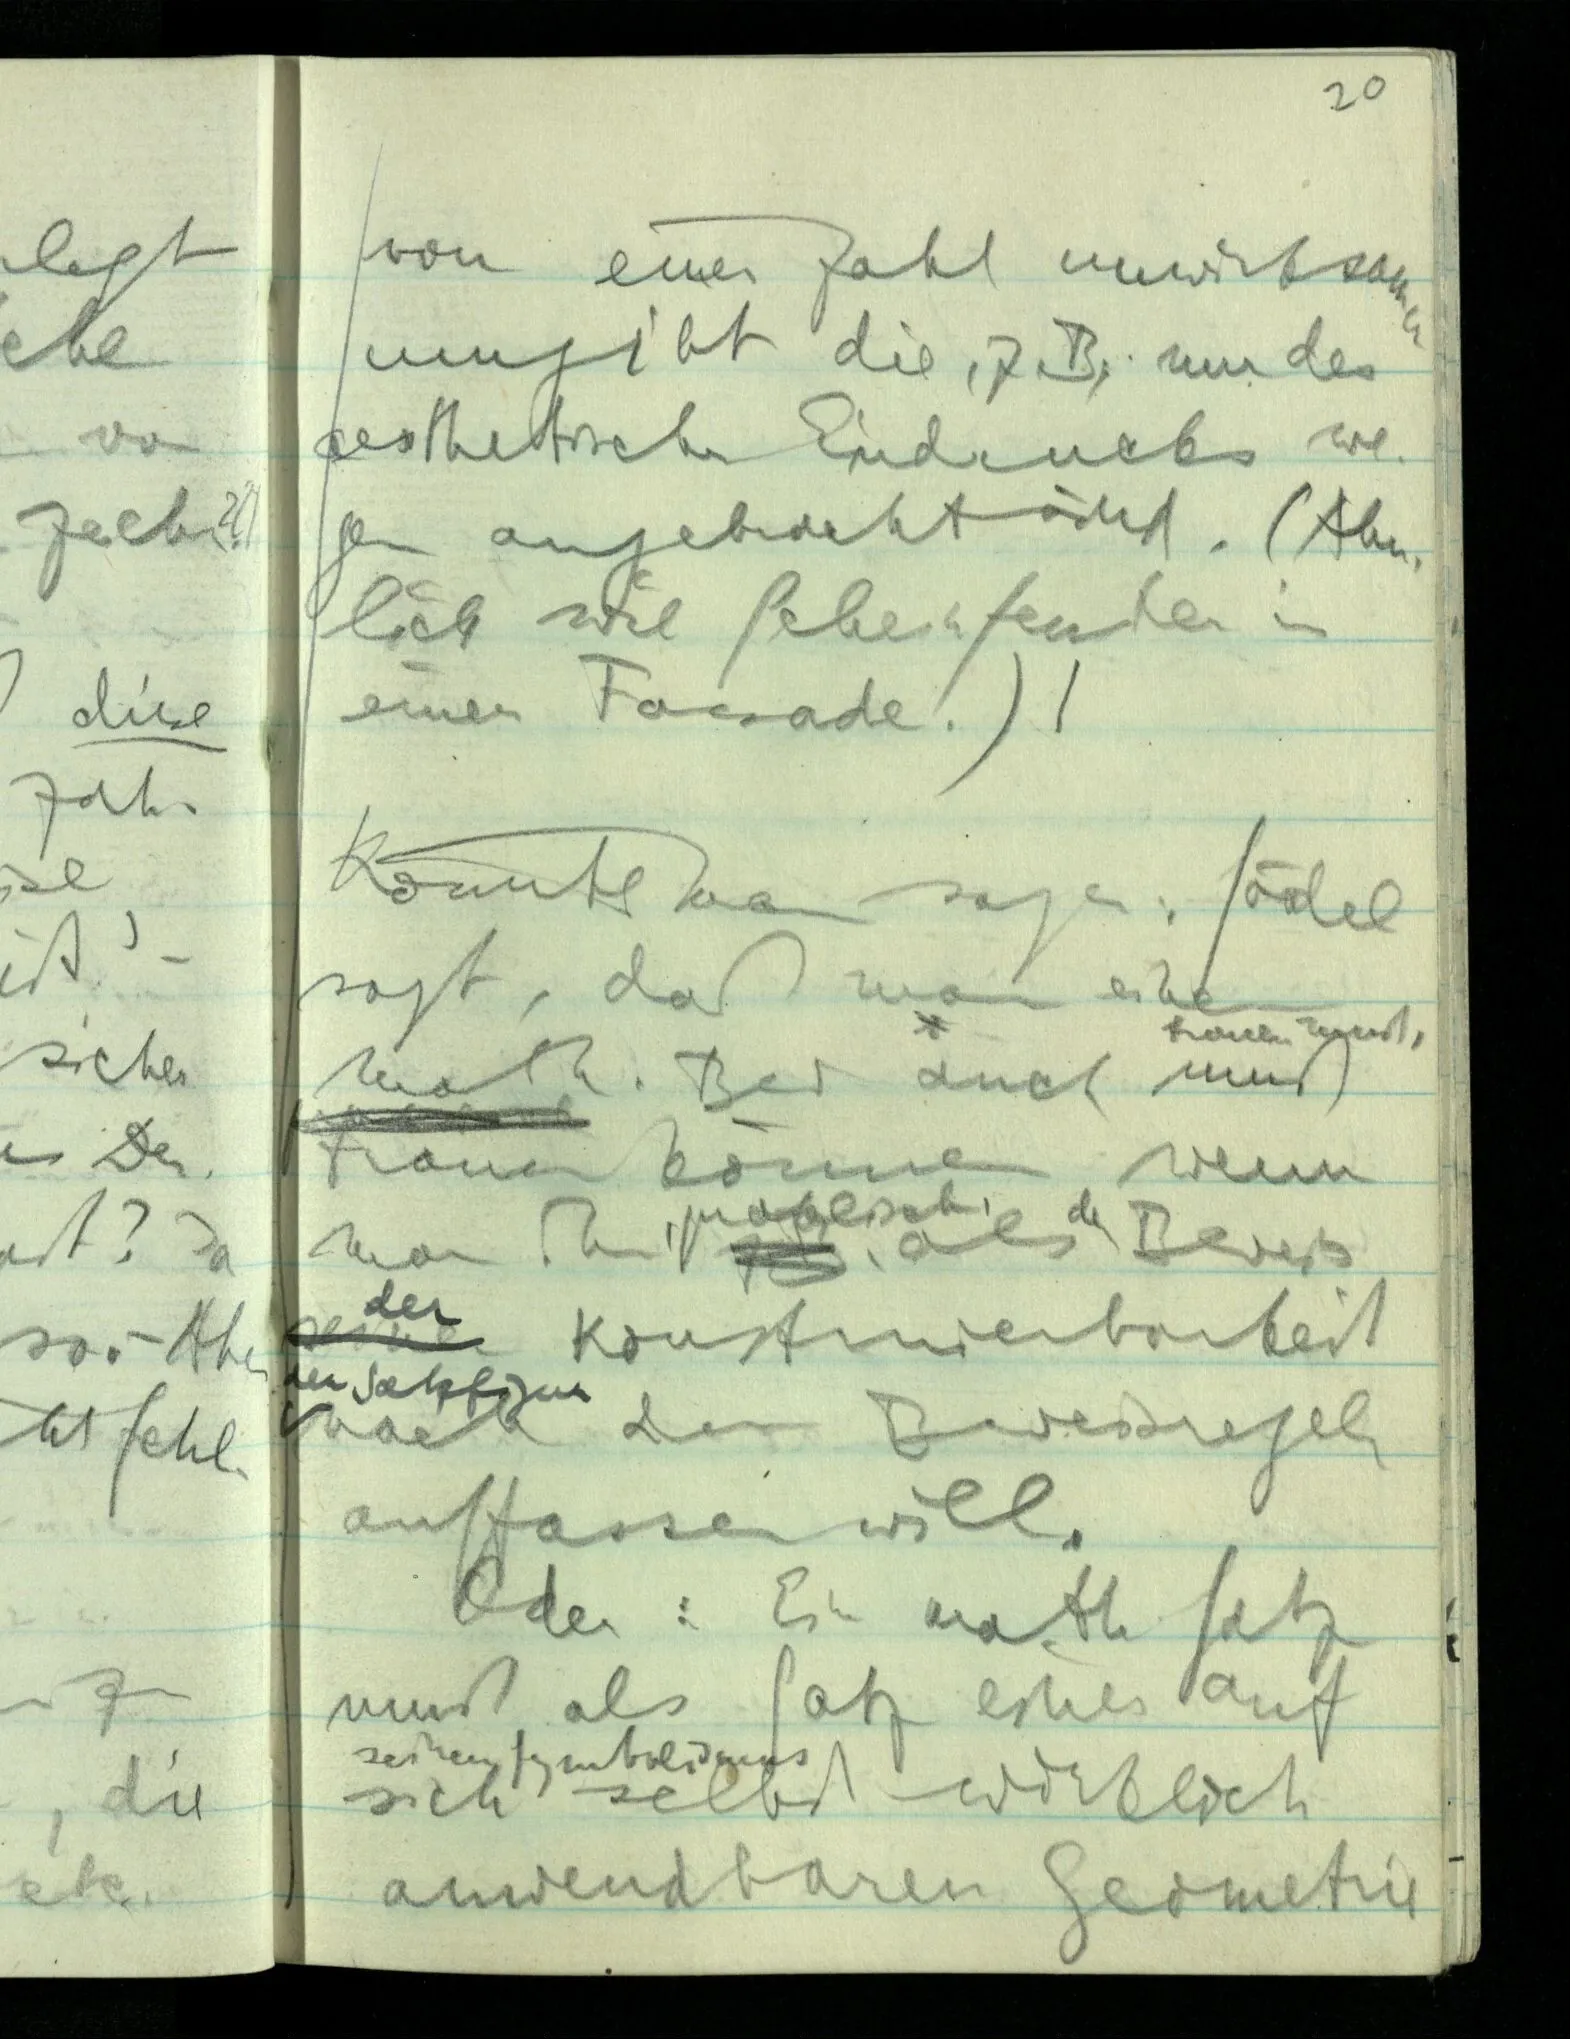 20
legt
che
va
Zeich
diese
Zah-
ise
ist' -
sicher
as Den-
ist? Ja
so. - Aber
fehl-
, die
etc.
von einer Zahl unwirksamer
umgibt die, z.B., nur des
aesthetischen Eindrucks we-
gen angebracht sind. (Ähn-
lich wie Scheinfenster in
einer Fassade.)/
Könnte man sagen: Gödel
sagt, daß man einem
trauen muß,
math. Beweis auch muß
trauen können wenn
man ihn, praktisch, als den Beweis
der
Konstruierbarkeit
der Satzfigur
nach den Beweisregeln
auffassen will.
Oder: Ein math. Satz
muß als Satz einer auf
seinen Symbolismus
sich selbst wirklich
anwendbaren Geometrie